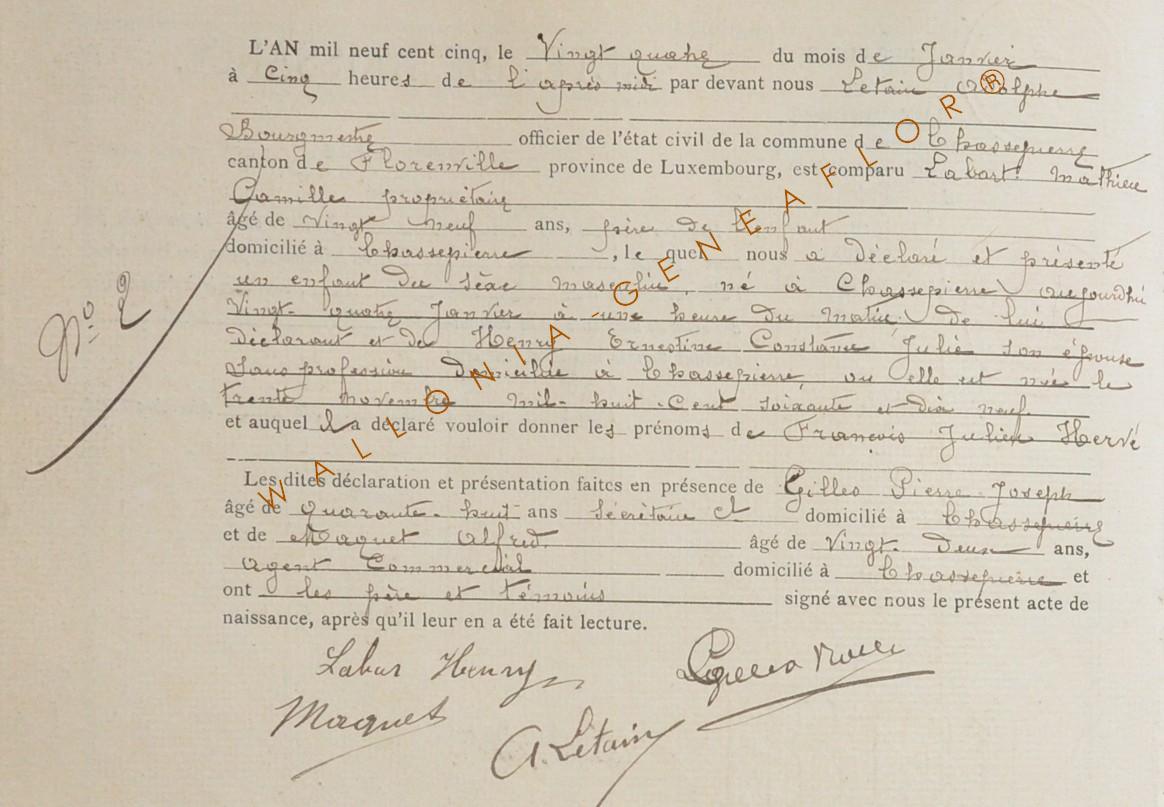 L'AN mil neuf cent cinq, le Vingt quatre du mois de Janvier
à Cinq heures de l'après midi par devant nous Letain Adolphe
Bourgmestre officier de l'état civil de la commune de Chassepierre
canton de Florenville province de Luxembourg, est comparu Labart Mathieu
Camille propriétaire
âgé de Vingt neuf ans, père de l'enfant
domicilié à Chassepierre, le quel nous a déclaré et présenté
un enfant du sèxe masculin, né à Chassepierre aujourdhui
Vingt-quatre Janvier à une heure du matin de lui
déclarant et de Henry Ernestine Constance Julie son épouse
sans profession domiciliée à Chassepierre, ou elle est née le
trente novembre mil-huit-Cent soixante et dix neuf
et auquel il a déclaré vouloir donner les prénoms de François Julien Hervé
Les dites déclaration et présentation faites en présence de Gilles Pierre-Joseph
âgé de quarante-huit ans Secrétaire Cl domicilié à Chassepierre
et de Maquet Alfred âgé de Vingt-Deux ans,
agent Commercial domicilié à Chassepierre et
ont les père et témoins signé avec nous le présent acte de
naissance, après qu'il leur en a été fait lecture.
No. 2
Labar Henry
Maquet
A. Létain
WALLONIA-GENEAFLOR®